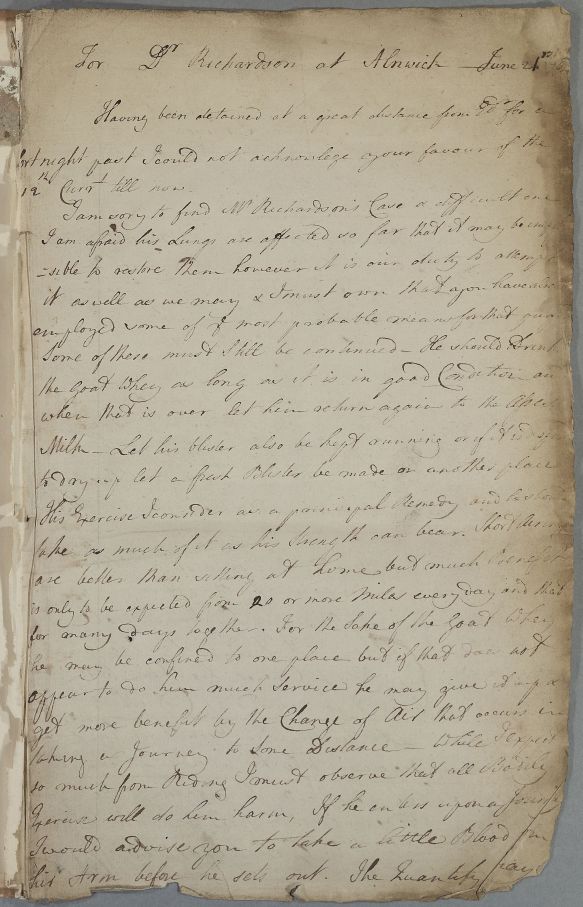 For Dr Richardson at Alnwick June 21
Having been detained at a great distance from Edr for a
fortnight past I could not acknowlege your favour of the
12th Currt till now.
I am sory to find Mr Richardson's Case a difficult one
I am afraid his Lungs are affected so far that it may be imp
-sible to restore them however it is our duty to attempt
it as well as we may & I must own that you have already
employed some of ye most probable means for that
Some of these must Still be continued - He should Drink
the Goat Whey as long as it is in good Condition and
when that is over let him return again to the Asses
Milk - Let his blister also be kept running or if it is
to dry up let a fresh Blister be made on another place
His Exercise I consider as a principal Remedy and
take as much of it as his Strength can bear. Short
are better than sitting at home but much Benefit
is only to be expected from 20 or more Miles every day and that
for many days together. For the Sake of the Goat Whey
he may be confined to one place but if that does not
appear to do him much Service he may give it up &
get more benefit by the Change of Air that occurs in
taking a Journey to Some Distance - While I expect
so much from Riding I must observe that all Bodily
Exercise will do him harm, If he enters upon a Journey
I would advise you to take a little Blood from
his Arm before he sets out. The Quantity may